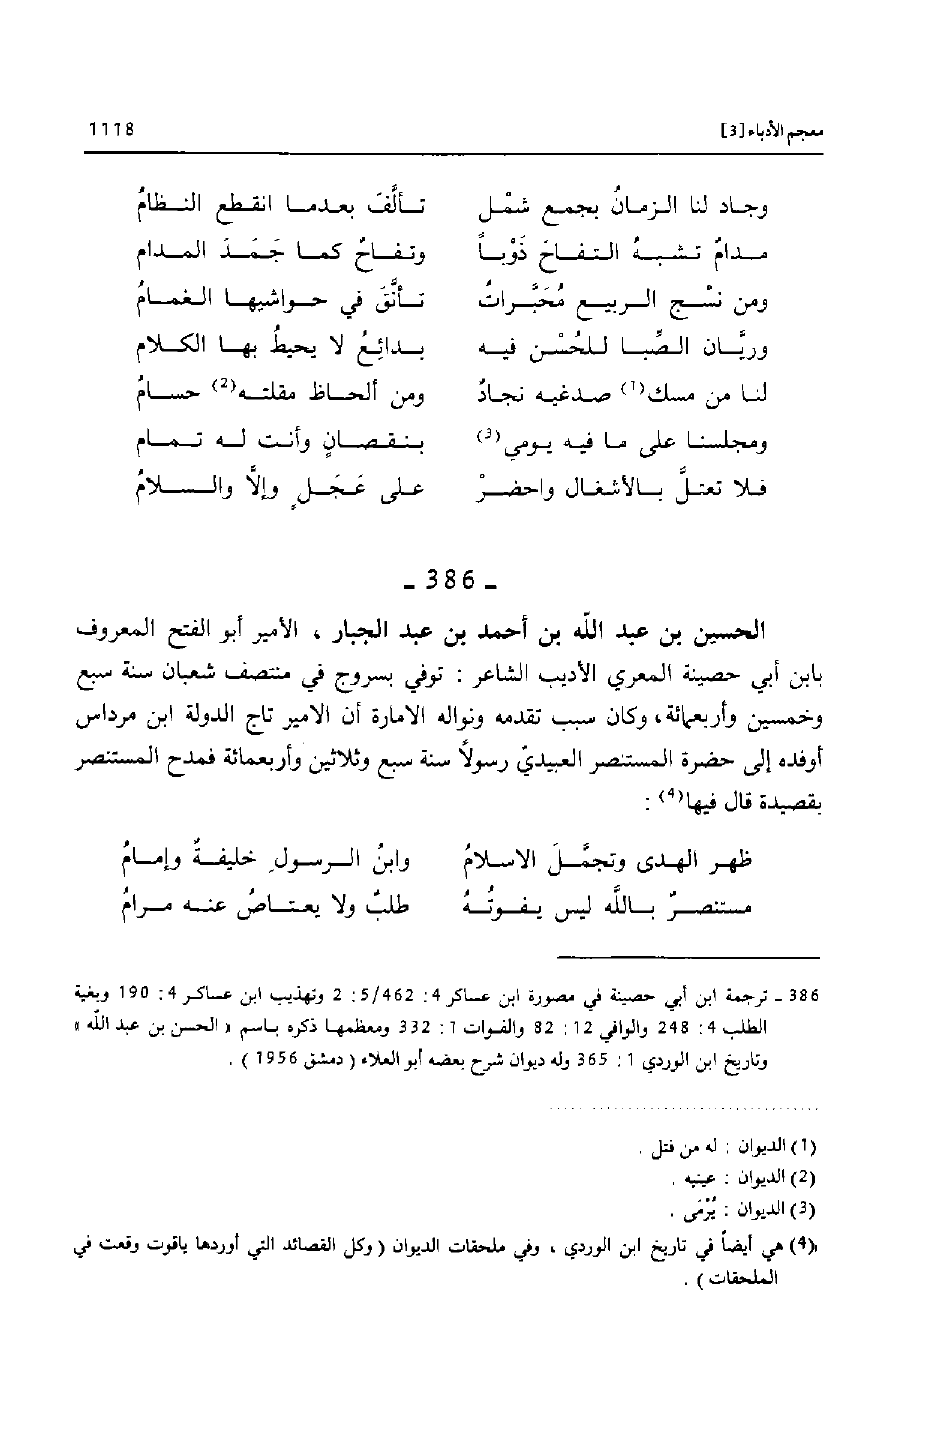 معجم الأدباء [3] 1118
وجاد لنا الزمانُ بجمع شمْل تألَّفَ بعدما انقطع النظامُ
مدامٌ تشبهُ التفاحَ ذَوْباً وتفاحٌ كما جَمَدَ المدام
ومن نسْج الربيع مُحَبَّراتٌ تأنَّقَ في حواشيها الغمامُ
وريَّان الصِّبا للحُسْن فيه بدائِعُ لا يحيطُ بها الكلام
لنا من مسك(1) صدغيه نجادٌ ومن ألحاظ مقلته(2) حسامُ
ومجلسنا على ما فيه يومي(3) بنقصانٍ وأنت له تمام
فلا تعتلَّ بالأشغال واحضرْ على عَجَلٍ وإلاَّ والسلامُ
- 386 -
الحسين بن عبد اللّه بن أحمد بن عبد الجبار ، الأمير أبو الفتح المعروف
بابن أبي حصينة المعري الأديب الشاعر : توفي بسروج في منتصف شعبان سنة سبع
وخمسين وأربعمائة، وكان سبب تقدمه ونواله الامارة أن الأمير تاج الدولة ابن مرداس
أوفده إلى حضرة المستنصر العبيديّ رسولاً سنة سبع وثلاثين وأربعمائة فمدح المستنصر
بقصيدة قال فيها(4) :
ظهر الهدى وتجمَّلَ الاسلامُ وابنُ الرسولِ خليفةٌ وإمامُ
مستنصرٌ باللَّه ليس يفوتُهُ طلبٌ ولا يعتاصُ عنه مرامُ
386 - ترجمة ابن أبي حصينة في مصورة ابن عساكر 4: 462/5: 2 وتهذيب ابن عساكر 4: 190 وبغية
الطلب 4: 248 والوافي 12: 82 والفوات 1: 332 ومعظمها ذكره باسم « الحسن بن عبد اللّه »
وتاريخ ابن الوردي 1: 365 وله ديوان شرح بعضه أبو العلاء ( دمشق 1956 ) .
(1) الديوان : له من فتل .
(2) الديوان : عينيه .
(3) الديوان : يُرْمَى .
(4) هي أيضاً في تاريخ ابن الوردي ، وفي ملحقات الديوان ( وكل القصائد التي أوردها ياقوت وقعت في
الملحقات ) .